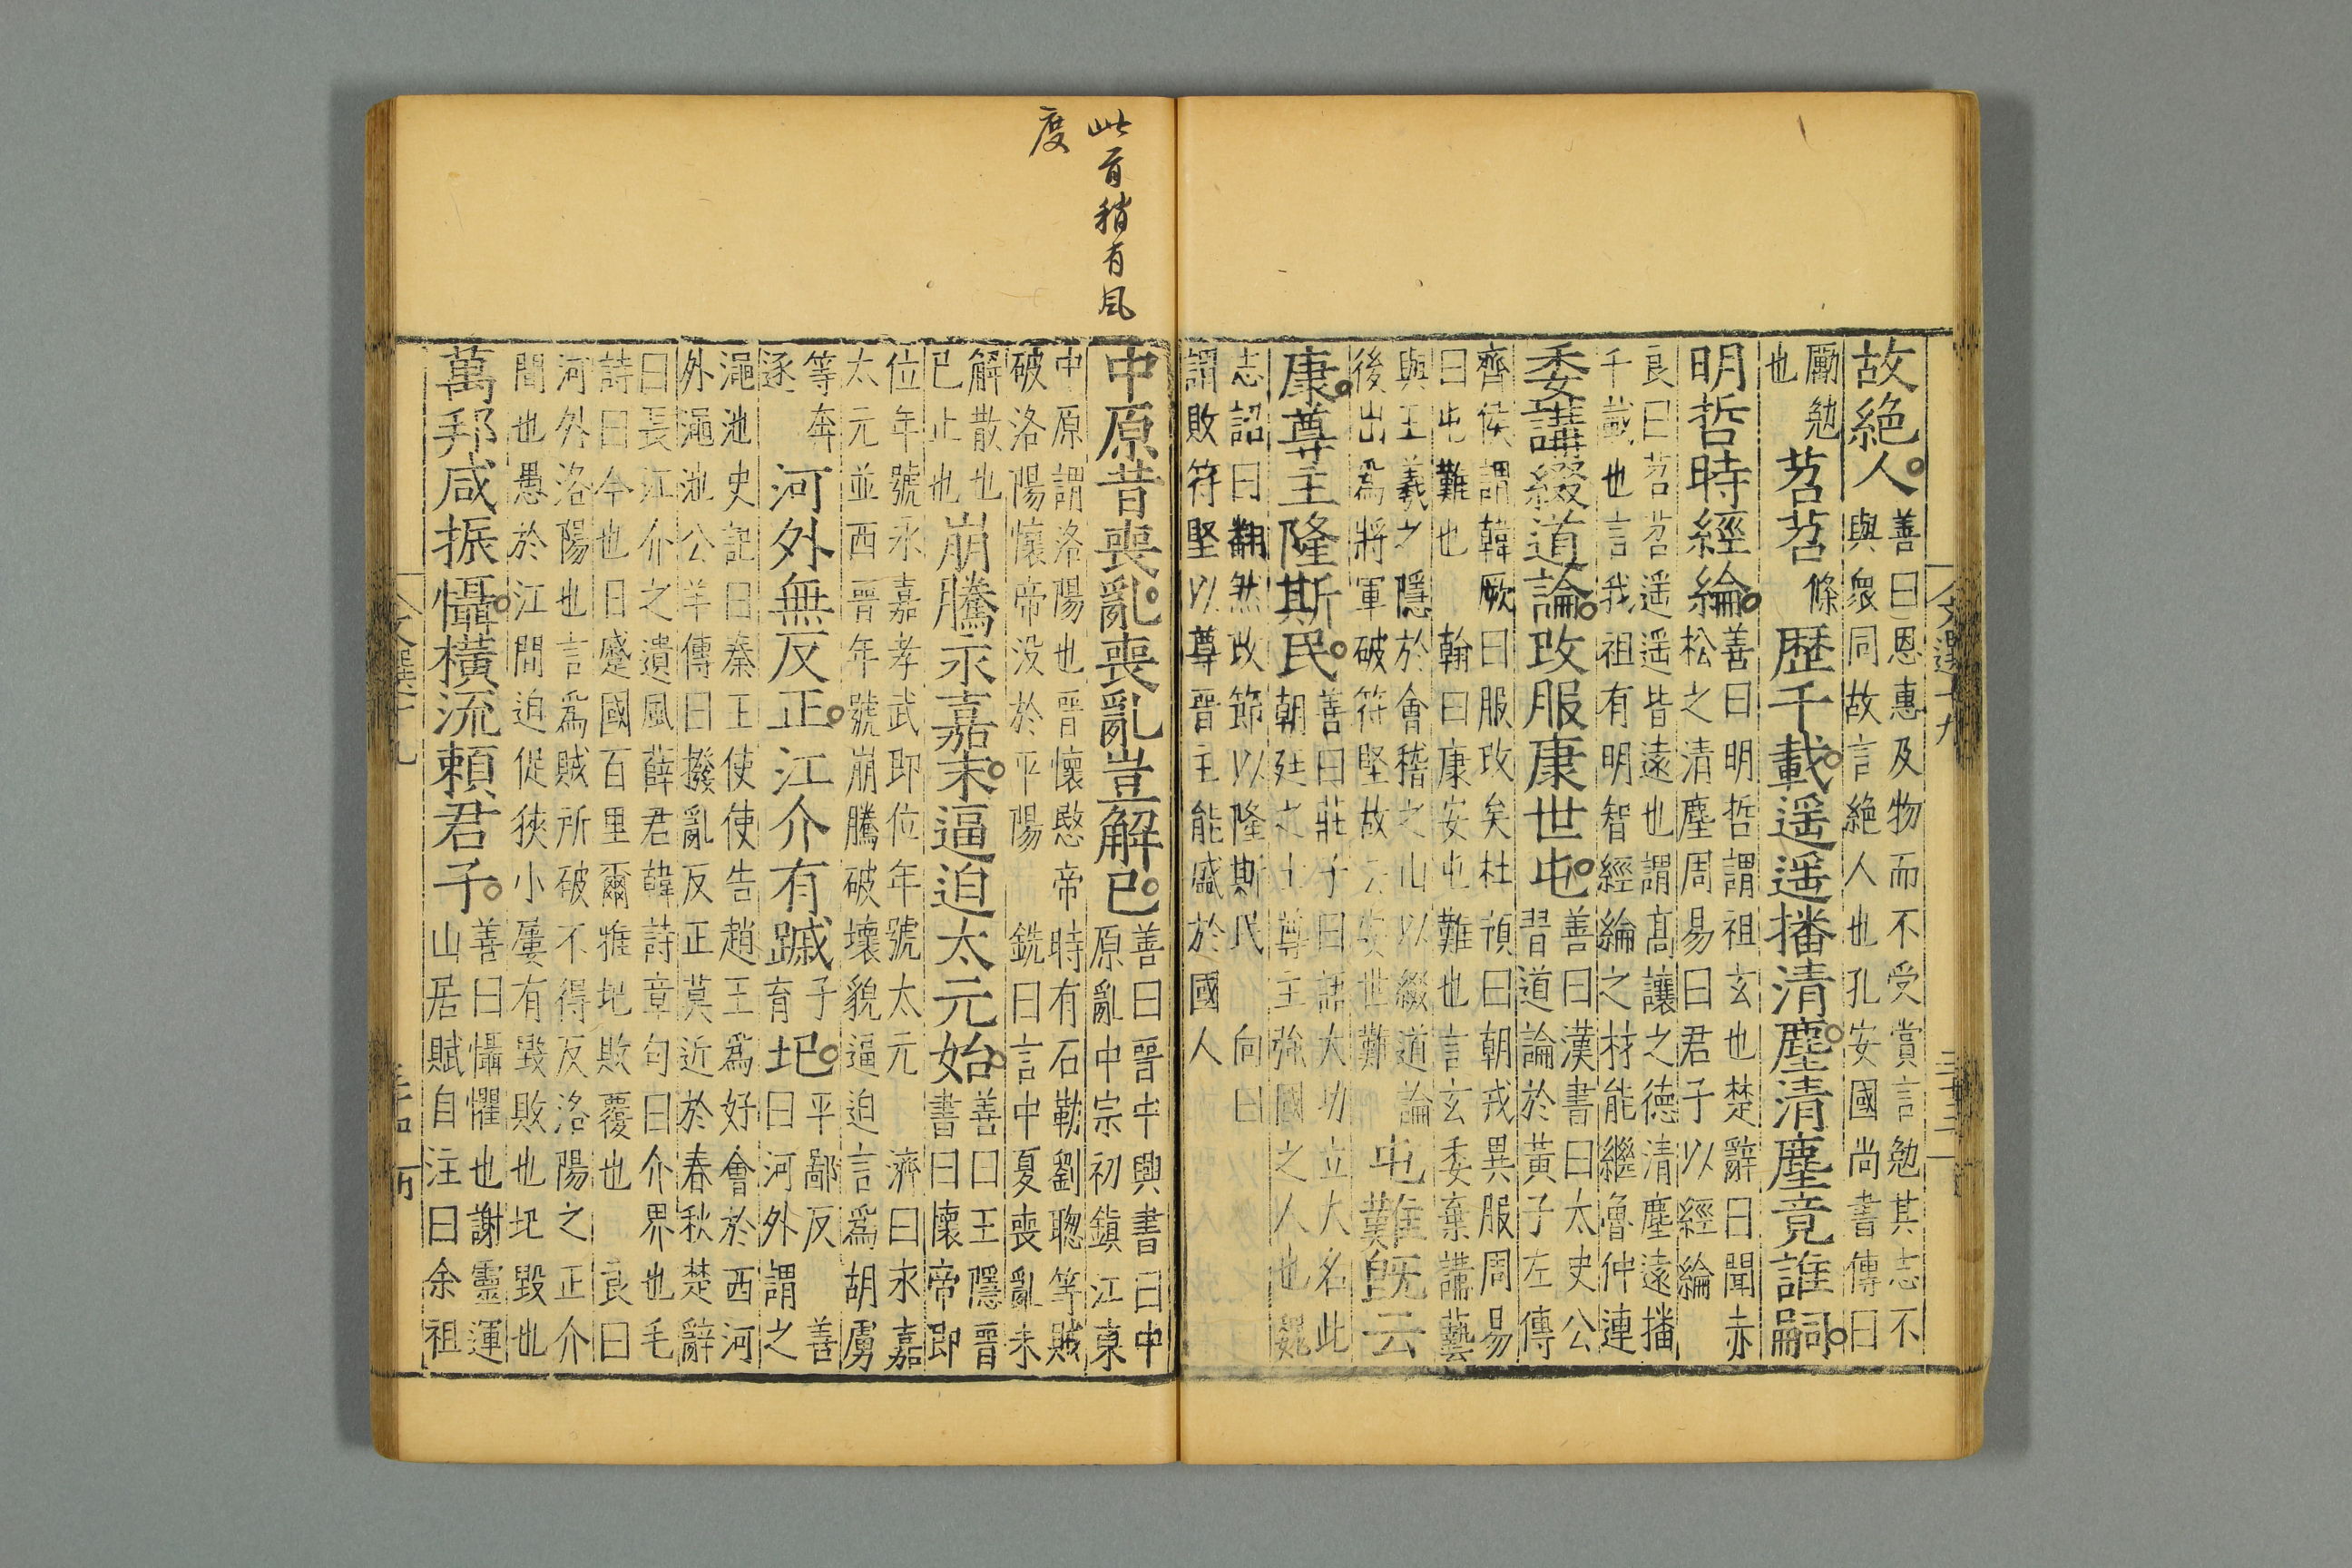 故絶人善曰恩惠及物而不受賞言勉其志不
與衆同故言絶人也孔安國尚書傳曰
勵勉
也苕苕條歴千載遥遥播清塵清塵竟誰嗣
明哲時經綸善曰明哲謂祖玄也楚辭曰聞赤
松之清塵周易曰君子以經綸
良曰苕苕遥遥皆遠也謂髙讓之德清塵遠播
千載也言我祖有明智經綸之材能繼魯仲連
委講綴道論改服康世屯善曰漢書曰太史公
習道論於黃子左傳
齊侯謂韓厥曰服改矣杜預曰朝戎異服周易
曰屯難也翰曰康安屯難也言玄委棄講藝
與王羲之隱於會稽之山以綴道論
後出爲將軍破符堅故云安世難屯難旣云
康尊主隆斯民善曰莊子曰語大功立大名此
朝廷之士尊主強國之人也嵆
志詔曰翻然改節以隆斯民向曰
謂敗符堅以尊晉主能盛於國人
文選十九
此首稍有風
度
中原昔喪亂喪亂豈解已善曰晉中興書曰中
原亂中宗初鎮江東
中原謂洛陽也晉懷愍帝時有石勒劉聰等賊
破洛陽懷帝没於平陽銑曰言中夏喪亂未
解散也
已止也崩騰永嘉末逼迫太元始善曰王隱晉
書曰懷帝即
位年號永嘉孝武即位年號太元濟曰永嘉
太元並西晉年號崩騰破壞貌逼迫言爲胡虜
等奔
逐河外無反正江介有蹴子育圯平鄙反善
曰河外謂之
澠池史記曰秦王使使告趙王爲好會於西河
外澠池公羊傳曰撥亂反正莫近於春秋楚辭
曰長江介之遺風薛君韓詩章句曰介界也毛
詩曰今也日蹙國百里爾雅圯敗覆也良曰
河外洛陽也言爲賊所破不得反洛陽之正介
間也愚於江間迫從狹小屢有毀敗也圯毀也
萬邦咸振懾橫流頼君子善曰懾懼也謝靈運
山居賦自注曰余祖